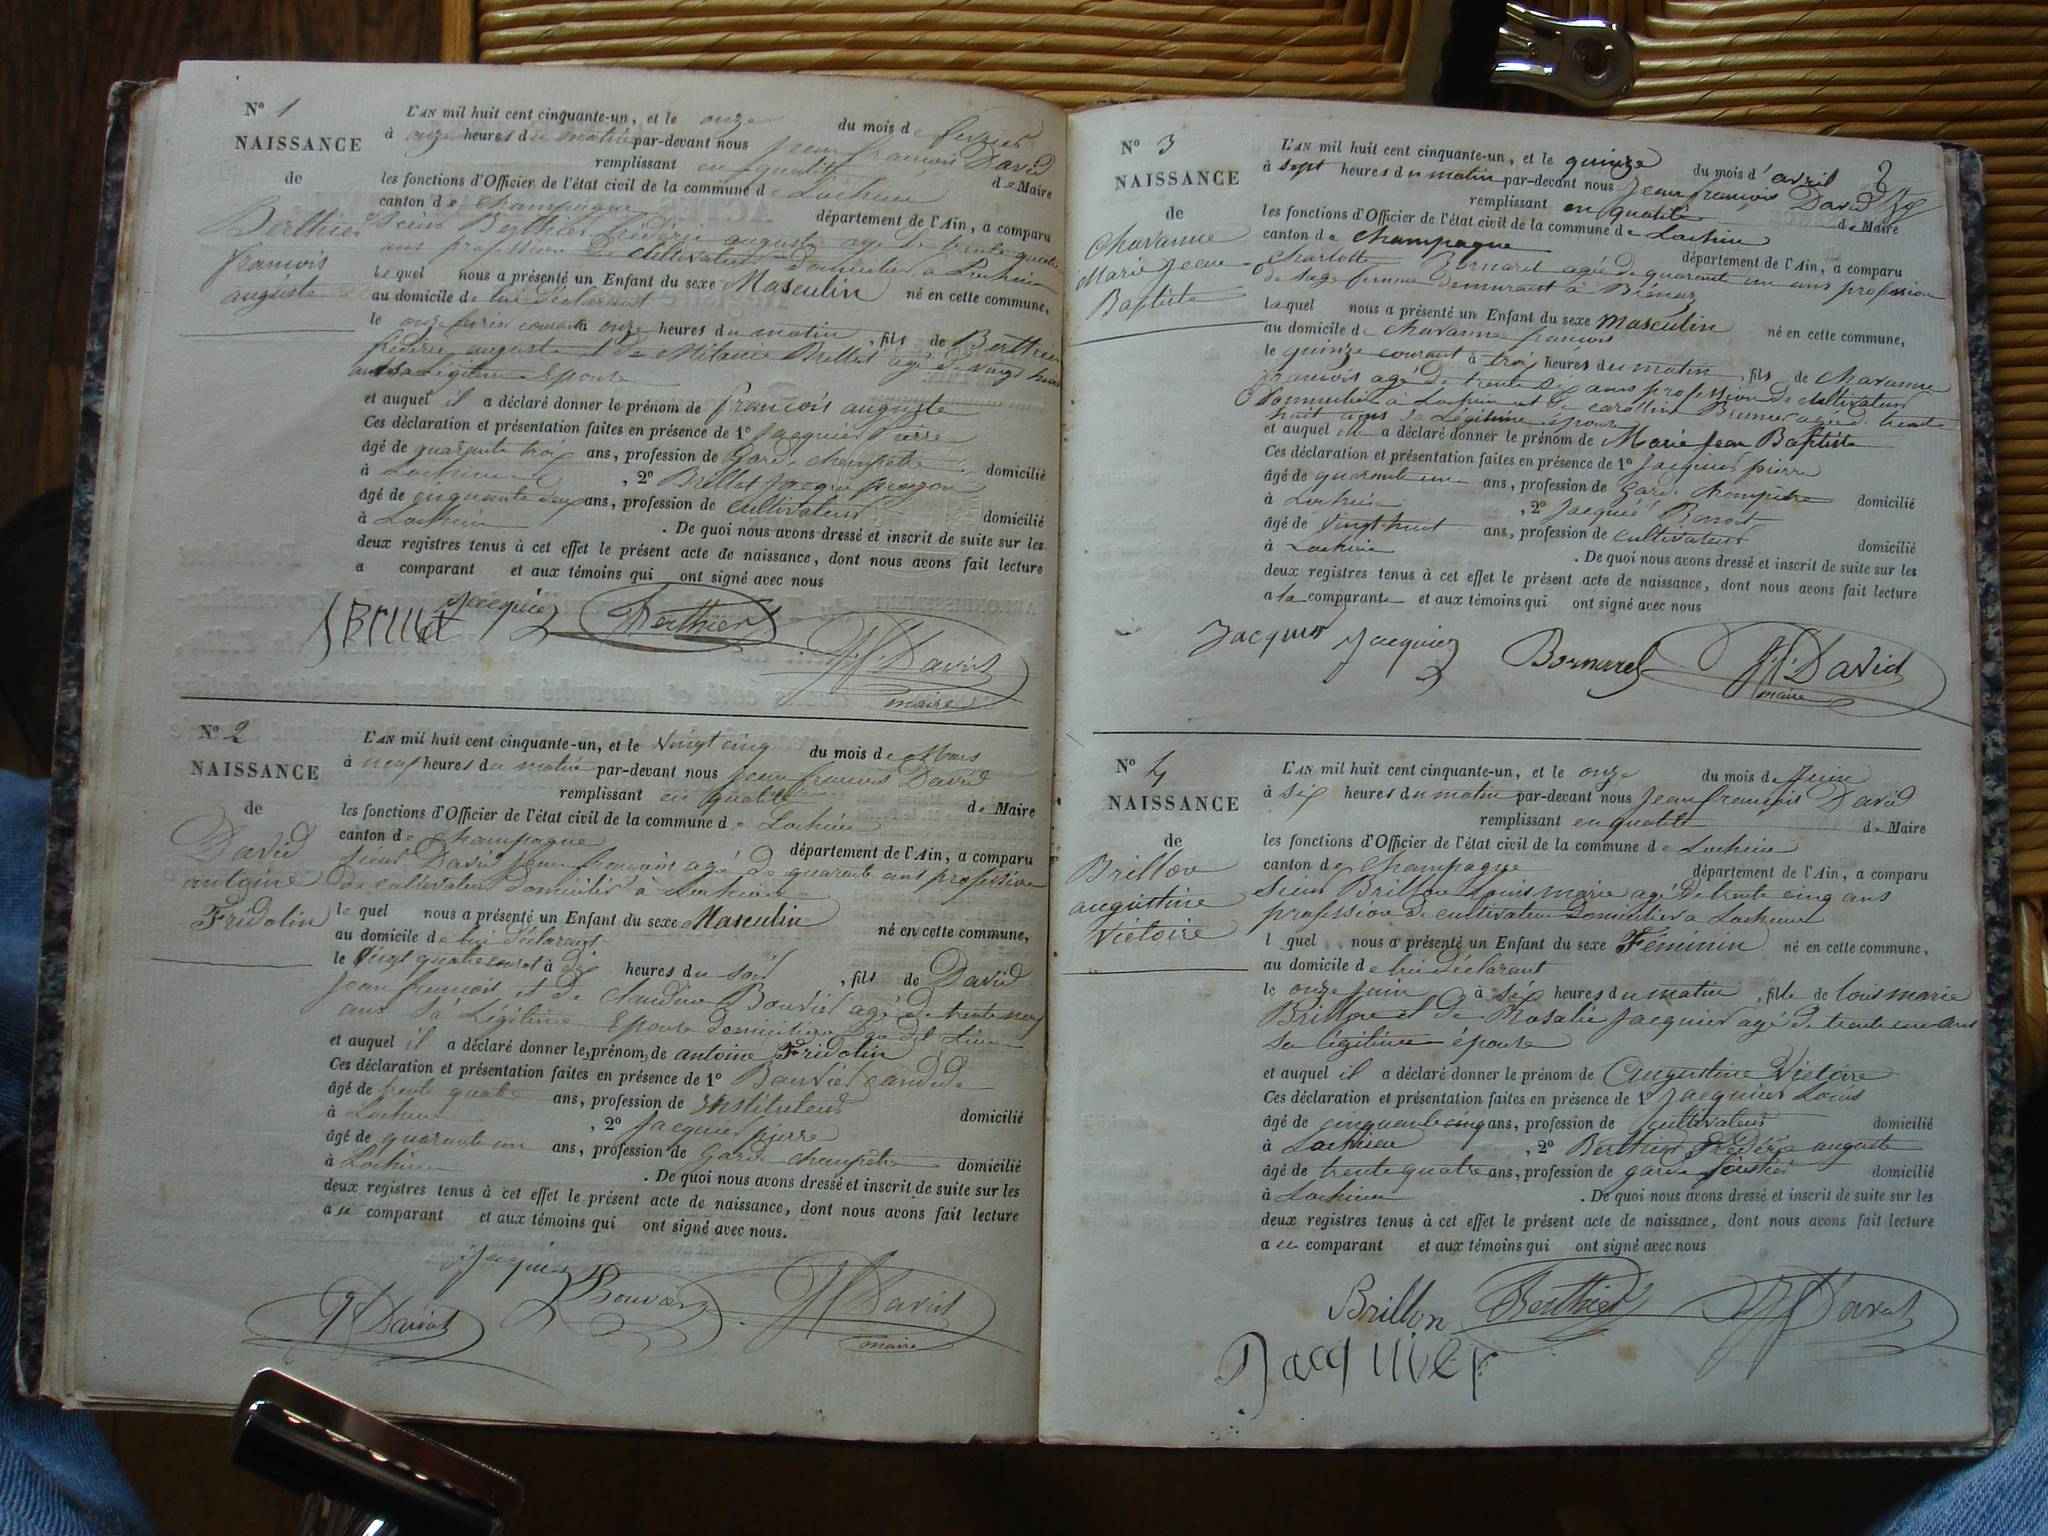 N° 1
NAISSANCE
de
Berthier
françois
auguste
L'AN mil huit cent cinquante-un, et le onze du mois de fevrier
à onze heures du matin par-devant nous Jean françois David
remplissant en qualité de Maire
les fonctions d'Officier de l'état civil de la commune de Lochieu
canton de Champagne département de l'Ain, a comparu
Sieur Berthier frédéric auguste agé de trente quatre
ans profession de cultivateur domicilier à Lochieu
le quel nous a présenté un Enfant du sexe Masculin né en cette commune,
au domicile de lui déclarant
le onze fevrier courant à onze heures du matin, fils de Berthier
frédéric auguste et de Mélanie Brillat agé de vingt huit
ans sa Légitime Epouse
et auquel il a déclaré donner le prénom de françois auguste
Ces déclaration et présentation faites en présence de 1° Jacquier Pierre
âgé de quarante trois ans, profession de Garde champêtre domicilié
à Lochieu, 2° Brillat Jacque
âgé de cinquante deux ans, profession de cultivateur domicilié
à Lochieu. De quoi nous avons dressé et inscrit de suite sur les
deux registres tenus à cet effet le présent acte de naissance, dont nous avons fait lecture
a comparant et aux témoins qui ont signé avec nous
Jacquier Berthier
JF David
maire
N° 2
NAISSANCE
de
David
antoine
Fridolin
L'AN mil huit cent cinquante-un, et le vingt cinq du mois de Mars
à neuf heures du matin par-devant nous Jean francois David
remplissant en qualité de Maire
les fonctions d'Officier de l'état civil de la commune de Lochieu
canton de Champagne département de l'Ain, a comparu
sieur David Jean françois agé de quarante ans profession
de cultivateur domicilier à Lochieu
le quel nous a présenté un Enfant du sexe Masculin né en cette commune,
au domicile de lui déclarant
le vingt quatre courant à dix heures du soir, fils de David
Jean francois et de claudine Bouvier agé de trente neuf
ans sa Légitime Epouse domicilière au dit Lieu
et auquel il a déclaré donner le prénom de antoine Fridolin
Ces déclaration et présentation faites en présence de 1° Bouvier candide
âgé de trente quatre ans, profession de Instituteur domicilié
à Lochieu, 2° Jacquier pierre
âgé de quarante un ans, profession de Garde champêtre domicilié
à Lochieu. De quoi nous avons dressé et inscrit de suite sur les
deux registres tenus à cet effet le présent acte de naissance, dont nous avons fait lecture
au comparant et aux témoins qui ont signé avec nous.
Jacquier
JF David Bouvier JF David
maire
2
N° 3
NAISSANCE
de
Charanne
Marie Jean
Baptiste
L'AN mil huit cent cinquante-un, et le quinze du mois d'avril
à sept heures du matin par-devant nous Jean françois David
remplissant en qualité de Maire
les fonctions d'Officier de l'état civil de la commune de Lochieu
canton de champagne département de l'Ain, a comparu
Charlotte Bornarel agée de quarante un ans profession
de sage femme demeurant à
laquel nous a présenté un Enfant du sexe Masculin né en cette commune,
au domicile de charanne françois
le quinze courant à trois heures du matin, fils de charanne
francois agé de trente ans profession de cultivateur
Domicilié à Lochieu et de caroline agée de trente
huit ans sa Légitime épouse
et auquel a déclaré donner le prénom de Marie Jean Baptiste
Ces déclaration et présentation faites en présence de 1° Jacquier pierre
âgé de quarante un ans, profession de Garde champêtre domicilié
à Lochieu, 2° Jacquié Benoit
âgé de vingt huit ans, profession de cultivateur domicilié
à Lochieu. De quoi nous avons dressé et inscrit de suite sur les
deux registres tenus à cet effet le présent acte de naissance, dont nous avons fait lecture
a la comparante et aux témoins qui ont signé avec nous
Jacquier Jacquier Bornarel JF David
maire
N° 4
NAISSANCE
de
Brillon
augustine
Victoire
L'AN mil huit cent cinquante-un, et le onze du mois de Juin
à six heures du matin par-devant nous Jean françois David
remplissant en qualité de Maire
les fonctions d'Officier de l'état civil de la commune de Lochieu
canton de Champagne département de l'Ain, a comparu
Sieur Brillon Louis marie agé de trente cinq ans
profession de cultivateur domicilier à Lochieu
l quel nous a présenté un Enfant du sexe Féminin né en cette commune,
au domicile de lui déclarant
le onze Juin à six heures du matin, fille de louis marie
Brillon et de Rosalie Jacquier agé de trente un ans
sa légitime épouse
et auquel il a déclaré donner le prénom de Augustine Victoire
Ces déclaration et présentation faites en présence de 1° Jacquier Louis
âgé de cinquante cinq ans, profession de cultivateur domicilié
à Lochieu, 2° Berthier Frédéric auguste
âgé de trente quatre ans, profession de garde forestier domicilié
à Lochieu. De quoi nous avons dressé et inscrit de suite sur les
deux registres tenus à cet effet le présent acte de naissance, dont nous avons fait lecture
au comparant et aux témoins qui ont signé avec nous
Brillon Berthier JF David
Jacquier